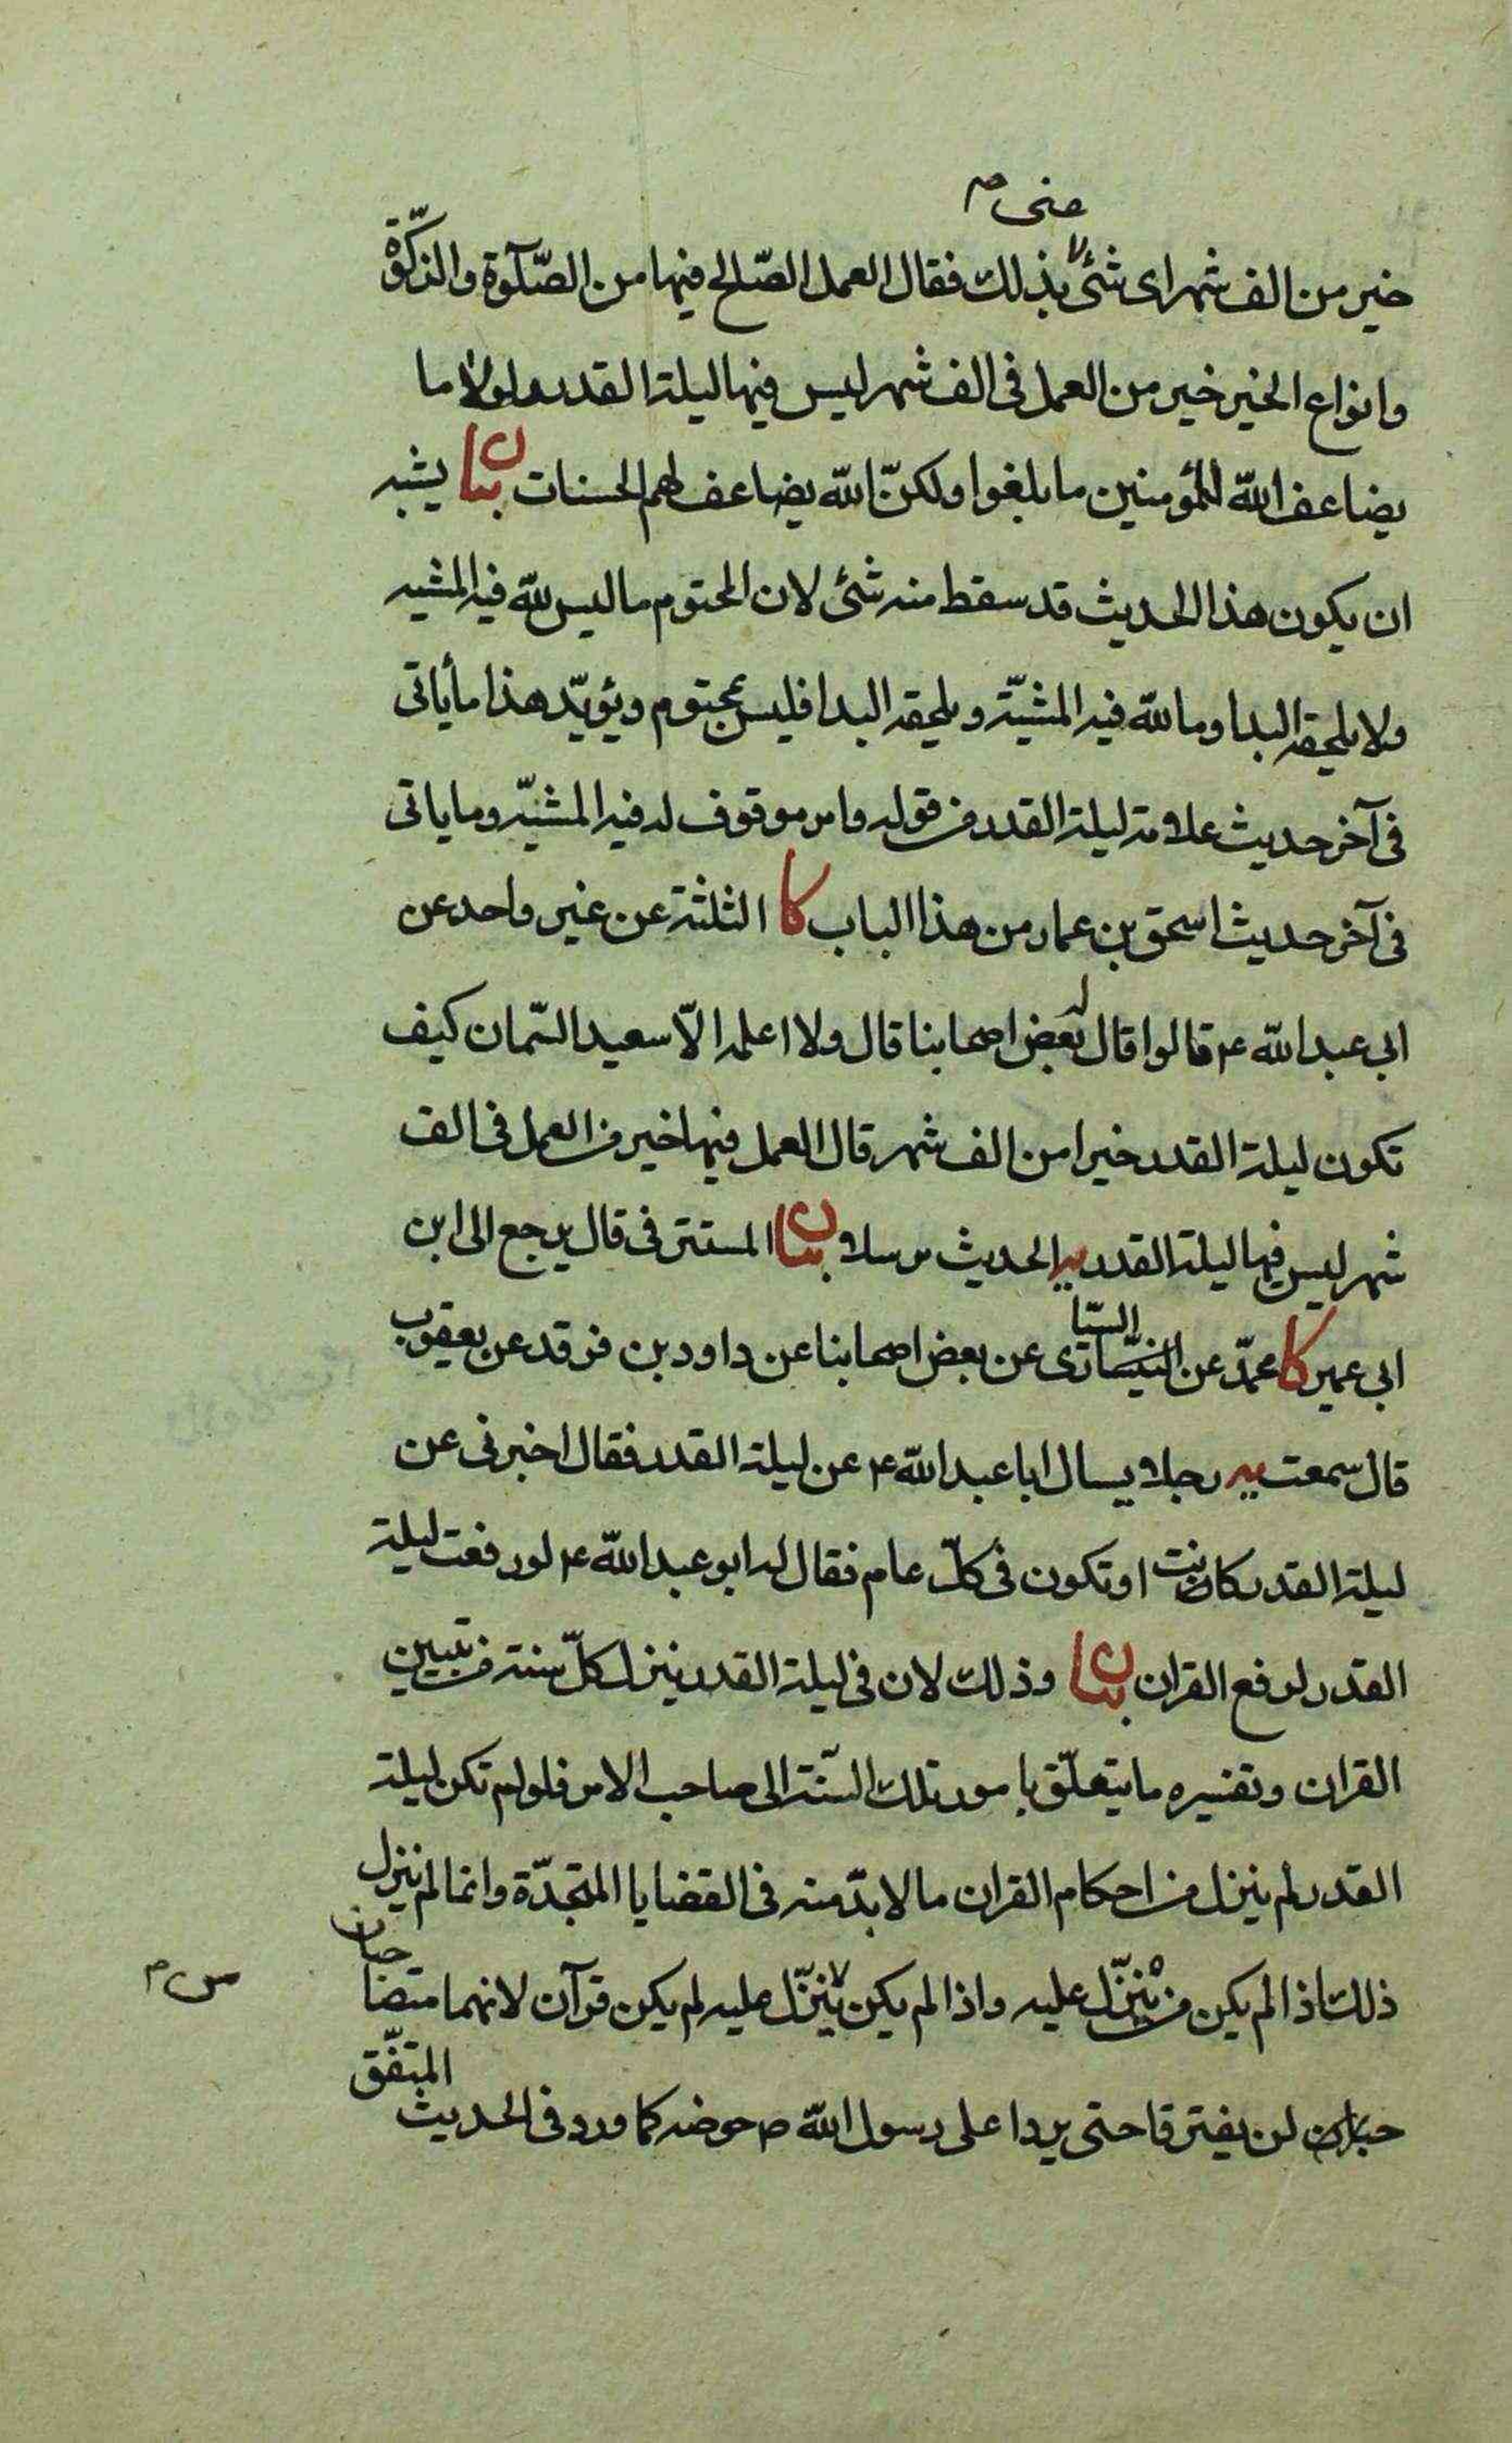 عنى م
خير من الف شهر اى شئ بذلك فقال العمل الصّالح فيها من الصّلوة والزّكوة
وانواع الخير خير من العمل فى الف شهر ليس فيها ليلة القدر ولولا ما
يضاعف الله للمؤمنين ما بلغوا ولكنّ الله يضاعف لهم الحسنات بيان يشبه
ان يكون هذا الحديث قد سقط منه شئ لان المحتوم ما ليس لله فيه المشيه
ولا يلحقه البدا وما لله فيه المشيّة ويلحقه البدا فليس بمحتوم ويؤيّد هذا ما يأتى
فى آخر حديث علامة ليلة القدر من قوله وامر موقوف له فيه المشيّه وما ياتى
فى آخر حديث اسحق بن عمار من هذا الباب كا الثلثة عن غير واحد عن
ابى عبد الله ع قالوا قال له بعض اصحابنا قال ولا اعلمه الّا سعيد السّمان كيف
تكون ليلة القدر خيرا من الف شهر قال العمل فيها خير من العمل فى الف
شهر ليس فيها ليلة القدر يه الحديث مرسلا بيان المستتر فى قال يرجع الى ابن
ابى عمير كا محمّد عن السّيّارى عن بعض اصحابنا عن داود بن فرقد عن يعقوب
قال سمعت يه رجلا يسال ابا عبد الله ع عن ليلة القدر فقال اخبرنى عن
ليلة القدر كانت او تكون فى كلّ عام فقال له ابو عبد الله ع لو رفعت ليلة
القدر لرفع القران بيان وذلك لان فى ليلة القدر ينزل كلّ سنة من تبيين
القران وتفسيره ما يتعلّق بامور تلك السّنة الى صاحب الامر فلو لم تكن ليلة
القدر لم ينزل من احكام القران ما لا بدّ منه فى القضايا المتجدّدة وانما لم ينزل
ذلك اذا لم يكن من ينزّل عليه واذا لم يكن من ينزّل عليه لم يكن قرآن لانهما متصاحبان
لن يفترقا حتى يردا على رسول الله ص حوضه كما ورد فى الحديث المتفّق